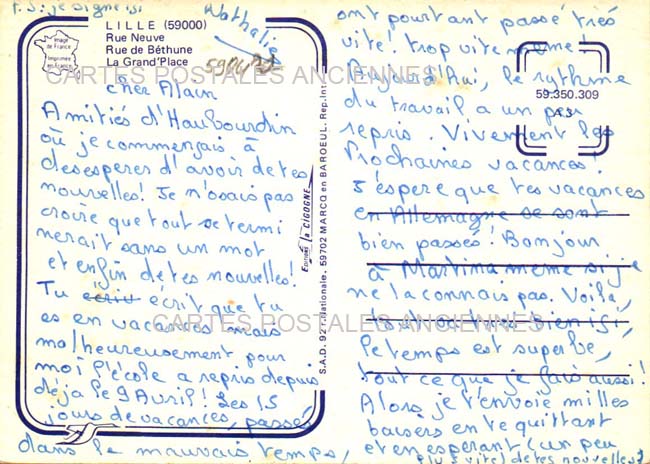 P.S: je signe ici Nathalie
LILLE (59000)
Rue Neuve
Rue de Béthune
La Grand'Place
Image de France
Imprimée en France
cher Alain
Amitiés d'Haubourdin
où je commençais à
desesperer d'avoir de tes
nouvelles! Je n'osais pas
croire que tout se termi
nerait sans un mot
et enfin de tes nouvelles!
Tu écrit que tu
es en vacances mais
malheureusement pour
moi l'école a repris depuis
déja le 9 Avril! Les 15
jours de vacances, passés
dans le mauvais temps,
Editions La CIGOGNE
S.A.D. 927, r. Nationale. 59702 MARCQ en BAROEUL. Rep. Int.
ont pourtant passé très
vite! trop vite même!
Aujourd'hui, le rythme
du travail a un peu
repris. Vivement les
Prochaines vacances!
J'espère que tes vacances
en Allemagne se sont
bien passés! Bonjour
à Martina meme si je
ne la connais pas. Voilà,
tout va bien ici,
le temps est superbe,
tout ce que je fais aussi!
Alors je t'envoie milles
baisers en te quittant
et en espérant (un peu
plus vite) de tes nouvelles?
59.350.309
CARTES POSTALES ANCIENNES
CARTES POSTALES ANCIENNES